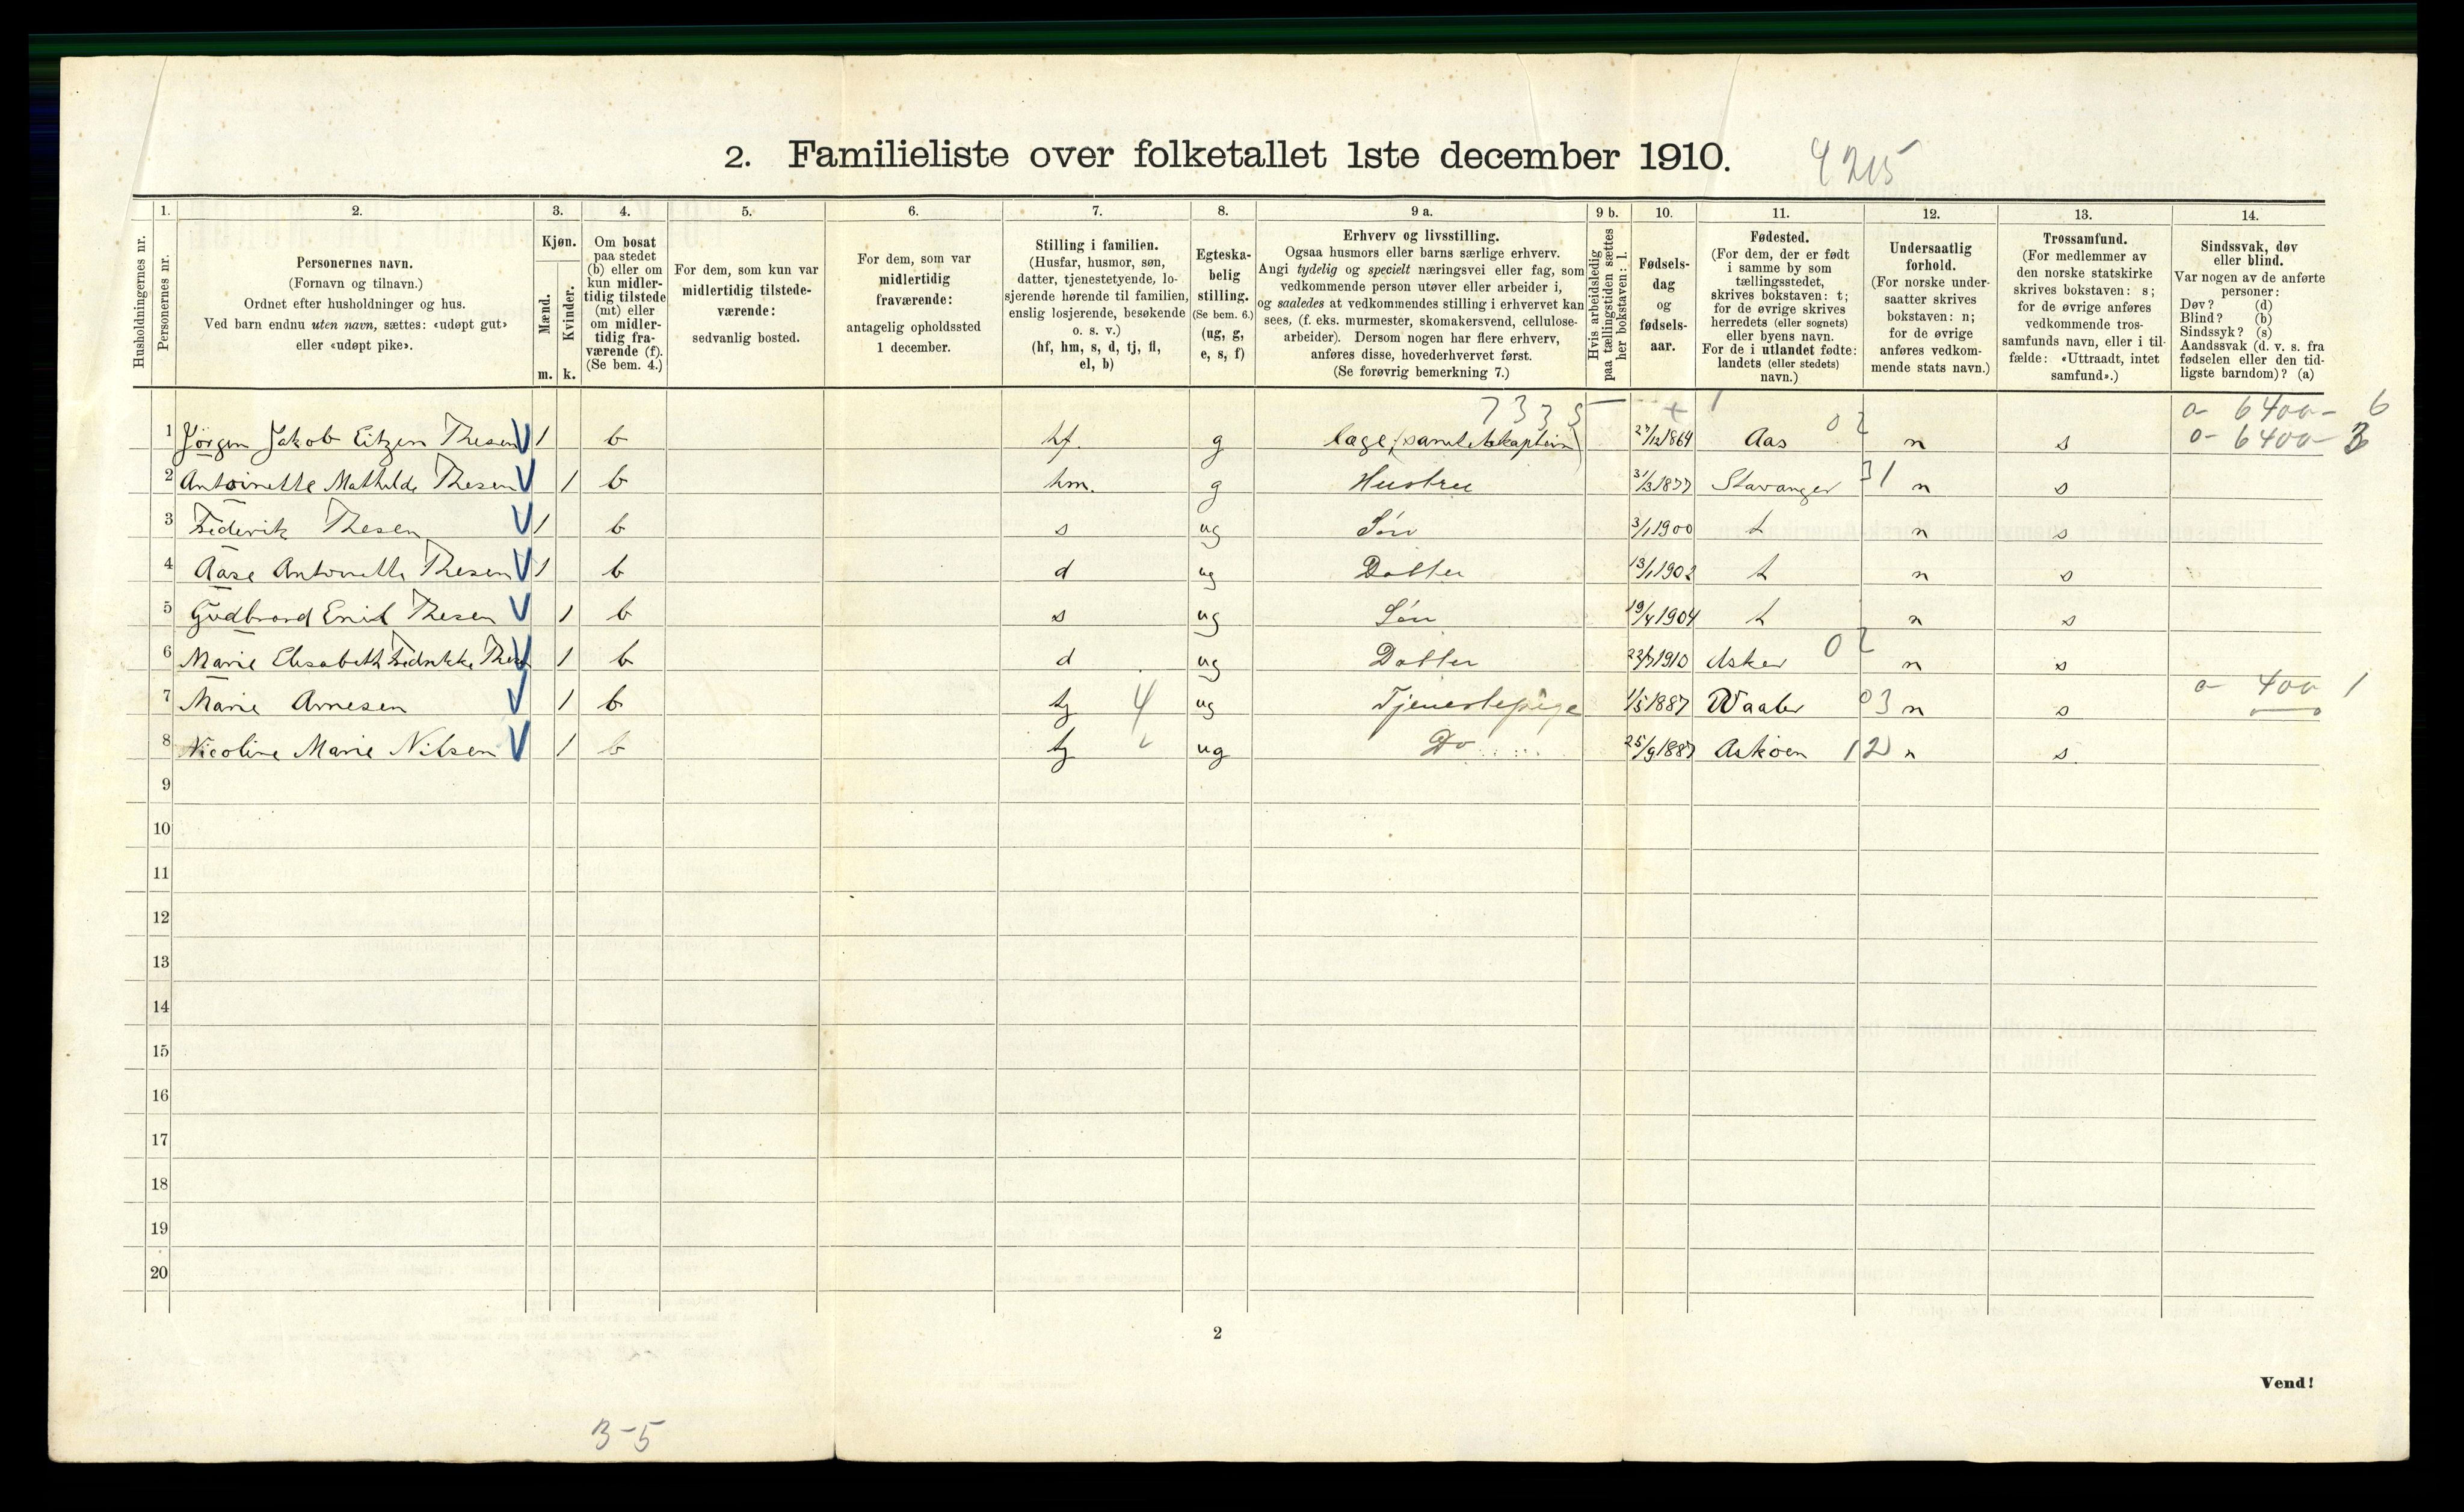 2. Familieliste over folketallet 1ste december 1910. 4215
1. 2. 3. 4. 5. 6. 7. 8. 9 a. 9 b. 10. 11. 12. 13. 14.
Husholdningernes nr.
Personernes nr.
Personernes navn.
(Fornavn og tilnavn.)
Ordnet efter husholdninger og hus.
Ved barn endnu uten navn, sættes: «udøpt gut»
eller «udøpt pike».
Kjøn.
Mænd.
Kvinder.
m. k.
Om bosat
paa stedet
(b) eller om
kun midler-
tidig tilstede
(mt) eller
om midler-
tidig fra-
værende (f).
(Se bem. 4.)
For dem, som kun var
midlertidig tilstede-
værende:
sedvanlig bosted.
For dem, som var
midlertidig
fraværende:
antagelig opholdssted
1 december.
Stilling i familien.
(Husfar, husmor, søn,
datter, tjenestetyende, lo-
sjerende hørende til familien,
enslig losjerende, besøkende
o. s. v.)
(hf, hm, s, d, tj, fl,
el, b)
Egteska-
belig
stilling.
(Se bem. 6.)
(ug, g,
e, s, f)
Erhverv og livsstilling.
Ogsaa husmors eller barns særlige erhverv.
Angi tydelig og specielt næringsvei eller fag, som
vedkommende person utøver eller arbeider i,
og saaledes at vedkommendes stilling i erhvervet kan
sees, (f. eks. murmester, skomakersvend, cellulose-
arbeider). Dersom nogen har flere erhverv,
anføres disse, hovederhvervet først.
(Se forøvrig bemerkning 7.)
Hvis arbeidsledig
paa tællingstiden sættes
her bokstaven: l.
Fødsels-
dag
og
fødsels-
aar.
Fødested.
(For dem, der er født
i samme by som
tællingsstedet,
skrives bokstaven: t;
for de øvrige skrives
herredets (eller sognets)
eller byens navn.
For de i utlandet fødte:
landets (eller stedets)
navn.)
Undersaatlig
forhold.
(For norske under-
saatter skrives
bokstaven: n;
for de øvrige
anføres vedkom-
mende stats navn.)
Trossamfund.
(For medlemmer av
den norske statskirke
skrives bokstaven: s;
for de øvrige anføres
vedkommende tros-
samfunds navn, eller i til-
fælde: «Uttraadt, intet
samfund».)
Sindssvak, døv
eller blind.
Var nogen av de anførte
personer:
Døv? (d)
Blind? (b)
Sindssyk? (s)
Aandssvak (d. v. s. fra
fødselen eller den tid-
ligste barndom)? (a)
7335 o- 6400- 6
1 Jörgen Jakob Eitzen Thesen V 1 b hf. g læge, (sanitetskaptein) 27/12 1864 Aas 02 n s o- 6400- 3
2 Antoinette Mathilde Thesen V 1 b hm. g Hustru 31/3 1877 Stavanger 31 n s
3 Frederik Thesen V 1 b s ug Sön 3/1 1900 t n s
4 Aase Antoinette Thesen V 1 b d ug Datter 13/1 1902 t n s
5 Gudbrand Emil Thesen V 1 b s ug Sön 19/4 1904 t n s
6 Marie Elisabeth Fredrikke Thesen V 1 b d ug Datter 22/7 1910 Asker 02 n s
7 Marie Arnesen V 1 b tj 4 ug Tjenestepige 1/5 1887 Waaler 03 n s o- 400 1
8 Nicoline Marie Nilsen V 1 b tj ug Do 25/9 1887 Asköen 12 n s
9
10
11
12
13
14
15
16
17
18
19
20
2
Vend!
3-5